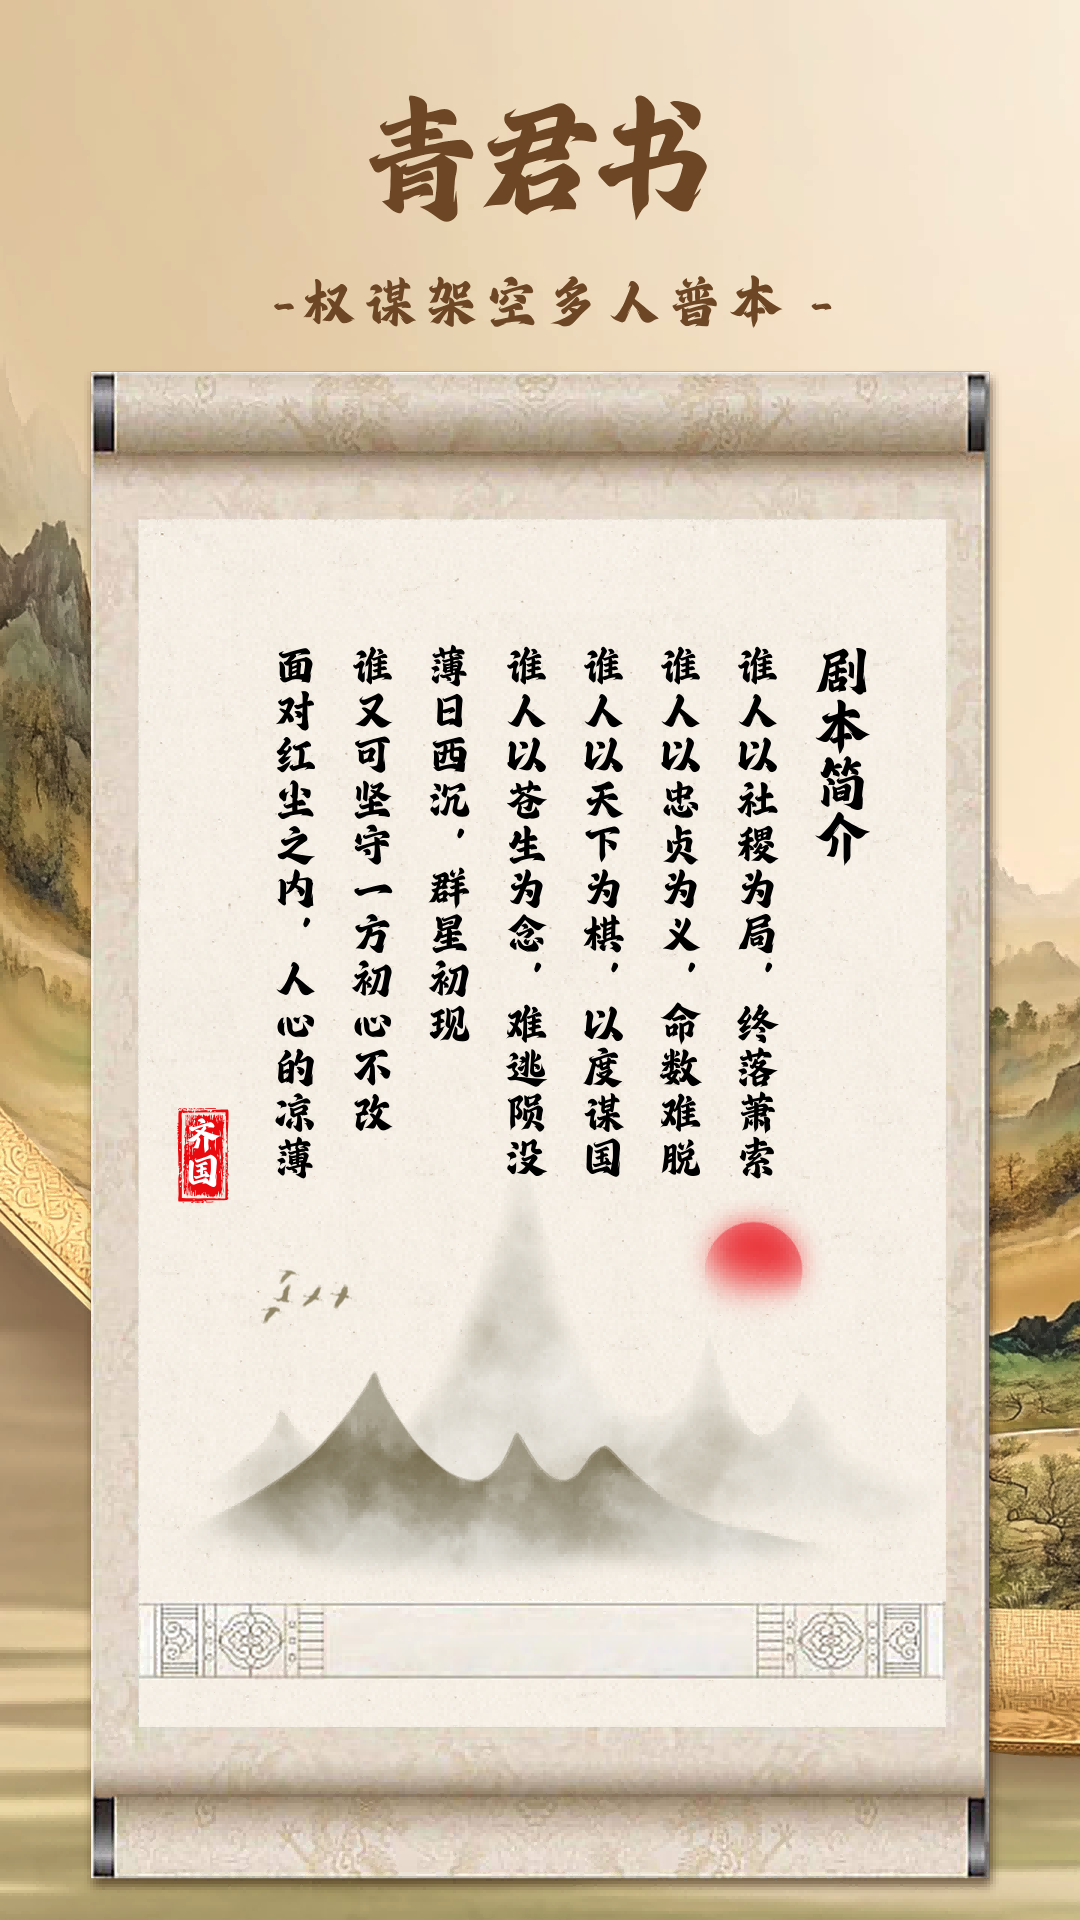 青君书
-权谋架空多人普本 -
剧本简介
谁人以社稷为局，终落萧索
谁人以忠贞为义，命数难脱
谁人以天下为棋，以度谋国
谁人以苍生为念，难逃陨没
薄日西沉，群星初现
谁又可坚守一方初心不改
面对红尘之内，人心的凉薄
齐国